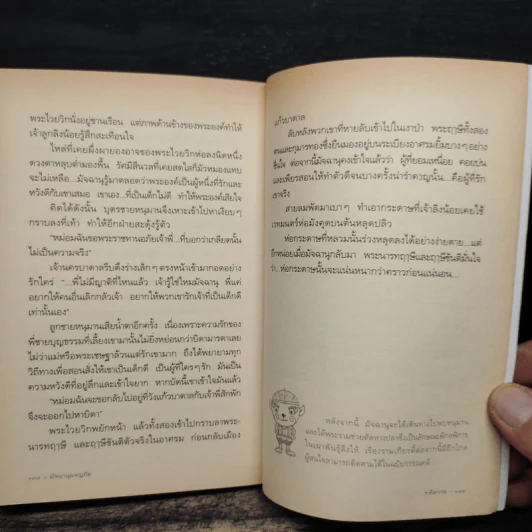 พระไวยวิกนั่งอยู่ชานเรือน แต่ภาพด้านข้างของพระองค์ทำให้
เจ้าลูกลิงน้อยรู้สึกสะเทือนใจ
ไหล่ที่เคยผึ่งผายองอาจของพระไวยวิกห่อลงนิดหนึ่ง
ดวงตาหลุบต่ำมองพื้น รัศมีสีนวลที่เคยสดใสก็มัวหมองแทบ
จะไม่เหลือ...มัจฉานุรู้มาตลอดว่าพระองค์เป็นผู้หนึ่งที่รักและ
หวังดีกับเขาเสมอ เขาเอง...ที่เป็นเด็กไม่ดี ทำให้พระองค์เสียใจ
คิดได้ดังนั้น บุตรชายหนุมานจึงเหาะเข้าไปหาเงียบๆ
กราบลงที่เท้า ทำให้อีกฝ่ายสะดุ้งรู้ตัว
"หม่อมฉันขอพระราชทานอภัยเจ้าพี่...ที่บอกว่าเกลียดนั้น
ไม่เป็นความจริง"
เจ้านครบาดาลรีบดึงร่างเล็กๆ ตรงหน้าเข้ามากอดอย่าง
รักใคร่ "...พี่ไม่มีญาติที่ไหนแล้ว เจ้ารู้ใช่ไหมมัจฉานุ พี่แค่
อยากให้คนอื่นเลิกกลัวเจ้า อยากให้พวกเขารักเจ้าที่เป็นเด็กดี
เท่านั้นเอง"
ลูกชายหนุมานเสียน้ำตาอีกครั้ง เนื่องเพราะความรักของ
พี่ชายบุญธรรมที่เลี้ยงเขามานั้นไม่ยิ่งหย่อนกว่าบิดามารดาเลย
ไม่ว่าแม่หรือพระเชษฐาล้วนแต่รักเขามาก ถึงได้พยายามทุก
วิถีทางเพื่อสอนสั่งให้เขาเป็นเด็กดี เป็นผู้ที่ใครๆรัก มันเป็น
ความหวังดีที่อยู่ลึกและเข้าใจยาก หากบัดนี้เขาเข้าใจมันแล้ว
"หม่อมฉันจะขอกลับไปอยู่ที่วังแก้วบาดาลกับเจ้าพี่สักพัก
จึงจะออกไปหาบิดา"
พระไวยวิกพยักหน้า แล้วทั้งสองเข้าไปกราบลาพระ-
นารทฤๅษี และฤๅษีชันติตัวจริงในอาศรม ก่อนกลับเมือง
แก้วบาดาล
ลับหลังพวกเขาที่หายลับเข้าไปในเงาป่า พระฤๅษีทั้งสอง
ตนและกุมารทองซึ่งยืนมองอยู่บนระเบียงอาศรมยิ้มบางๆอย่าง
ชื่นใจ ต่อจากนี้มัจฉานุคงเข้าใจแล้วว่า ผู้ที่ยอมเหนื่อย คอยเข่น
และเพียรสอนให้ทำตัวดีจนบางครั้งน่ารำคาญนั้น...คือผู้ที่รัก
เขาจริง
สายลมพัดมาเบาๆ ทำเอากระดาษที่เจ้าลิงน้อยเคยใช้
เวทมนตร์ห่อมังคุดบนต้นหลุดปลิว
ห่อกระดาษที่หลวมนั้นร่วงหลุดลงได้อย่างง่ายดาย...แต่
อีกหน่อยเมื่อมัจฉานุกลับมา พระนารทฤๅษีและฤๅษีชันติมั่นใจ
ว่า ห่อกระดาษนั้นจะแน่นหนากว่าคราวก่อนแน่นอน...
หลังจากนี้ มัจฉานุจะได้เดินทางไปพบหนุมาน
และได้พระรามช่วยตัดหางปลาซึ่งเป็นลักษณะพิกลพิการ
ในเผ่าพันธุ์ลิงให้ เรื่องรามเกียรติ์ต่อจากนี้มีอีกไกล
ผู้สนใจสามารถติดตามได้ในฉบับวรรณคดี